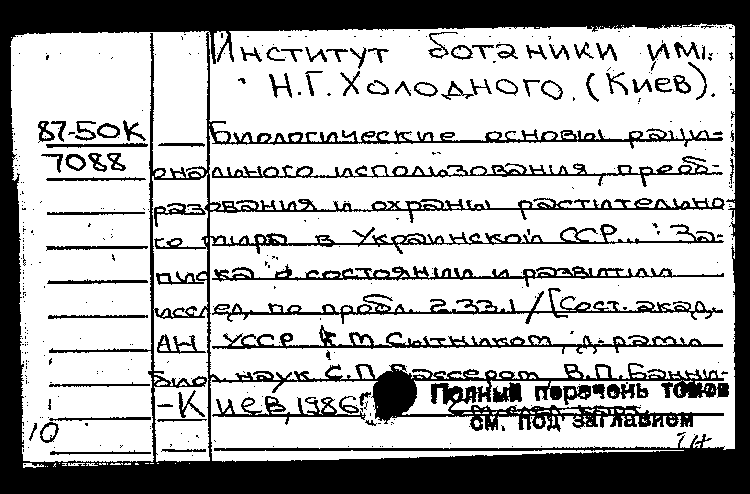 Институт ботаники им.
Н.Г. Холодного. (Киев).
87-50К Биологические основы раци-
7088 онального использования, преоб-
разования и охраны растительно-
го мира в Украинской ССР... : За-
писка о состоянии и развитии
исслед. по пробл. 2.33.1 / [Сост. акад.
АН УССР К.М. Сытником, д-рами
биол. наук С.П. Вассером, В.П.
- Киев, 1986 Полный перечень томов
см. под заглавием
10